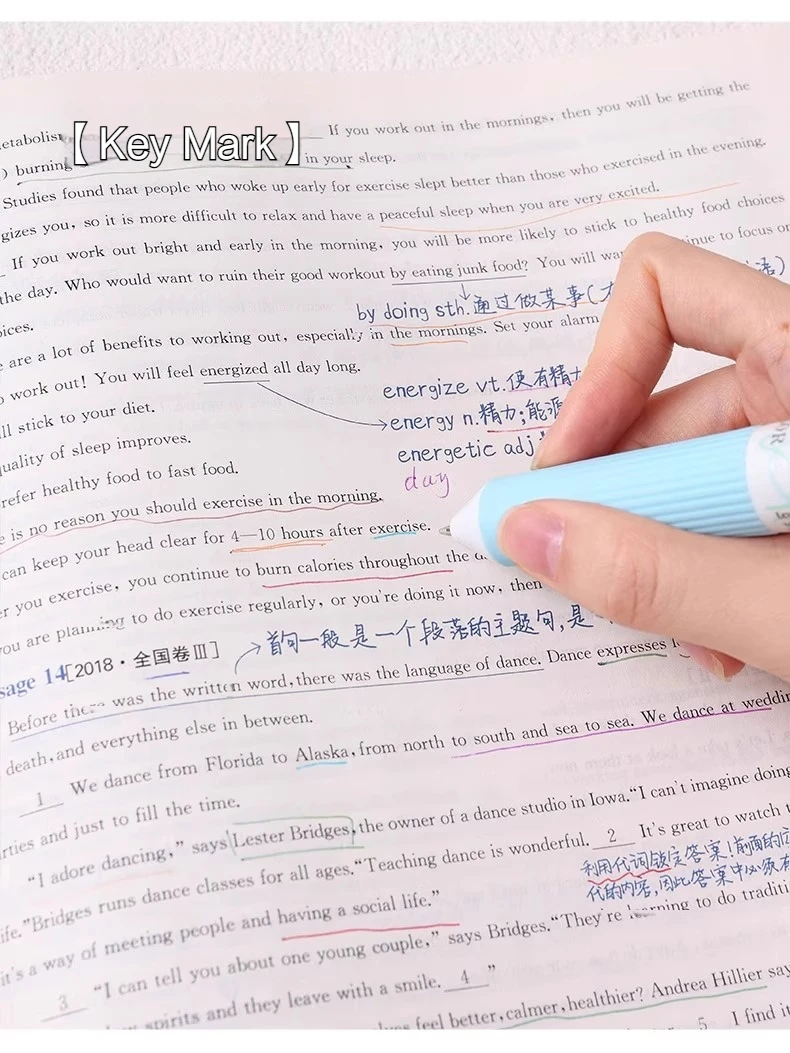 【Key Mark】
If you work out in the mornings, then you will be getting the
) burning in your sleep.
Studies found that people who woke up early for exercise slept better than those who exercised in the evening.
gizes you, so it is more difficult to relax and have a peaceful sleep when you are very excited.
If you work out bright and early in the morning, you will be more likely to stick to healthy food choices
the day. Who would want to ruin their good workout by eating junk food? You will focus on
by doing sth. 通过做某事(
are a lot of benefits to working out, especially in the mornings. Set your alarm
work out! You will feel energized all day long.
energize vt. 使有精力
ll stick to your diet.
energy n. 精力;能源
uality of sleep improves.
energetic adj
refer healthy food to fast food.
day
is no reason you should exercise in the morning.
can keep your head clear for 4—10 hours after exercise.
you exercise, you continue to burn calories throughout the
ou are planning to do exercise regularly, or you're doing it now, then
首句一般是一个段落的主题句,是
sage 14[2018·全国卷Ⅲ]
Before there was the written word, there was the language of dance. Dance expresses
death, and everything else in between.
1 We dance from Florida to Alaska, from north to south and sea to sea. We dance at weddin
rties and just to fill the time.
“I adore dancing,” says Lester Bridges, the owner of a dance studio in Iowa. “I can't imagine doing
ife.” Bridges runs dance classes for all ages. “Teaching dance is wonderful. 2 It's great to watch t
利用代词锁定答案!前面的
代的内容,因此答案中必须有
it's a way of meeting people and having a social life.”
3 “I can tell you about one young couple,” says Bridges. “They're learning to do traditi
spirits and they leave with a smile. 4 ”
feel better, calmer, healthier? Andrea Hillier say
5 I find it